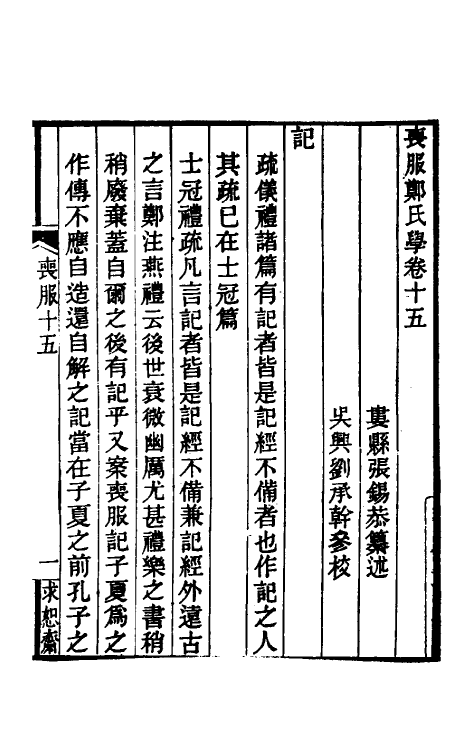 喪服鄭氏學卷十五
婁縣張錫恭纂述
吳興劉承幹參校
記
疏儀禮諸篇有記者皆是記經不備者也作記之人
其疏已在士冠篇
士冠禮疏凡言記者皆是記經不備兼記經外遠古
之言鄭注燕禮云後世衰微幽厲尤甚禮樂之書稍
稍廢棄蓋自爾之後有記乎又案喪服記子夏爲之
作傳不應自造還自解之記當在子夏之前孔子之
喪服十五
一
求恕齋